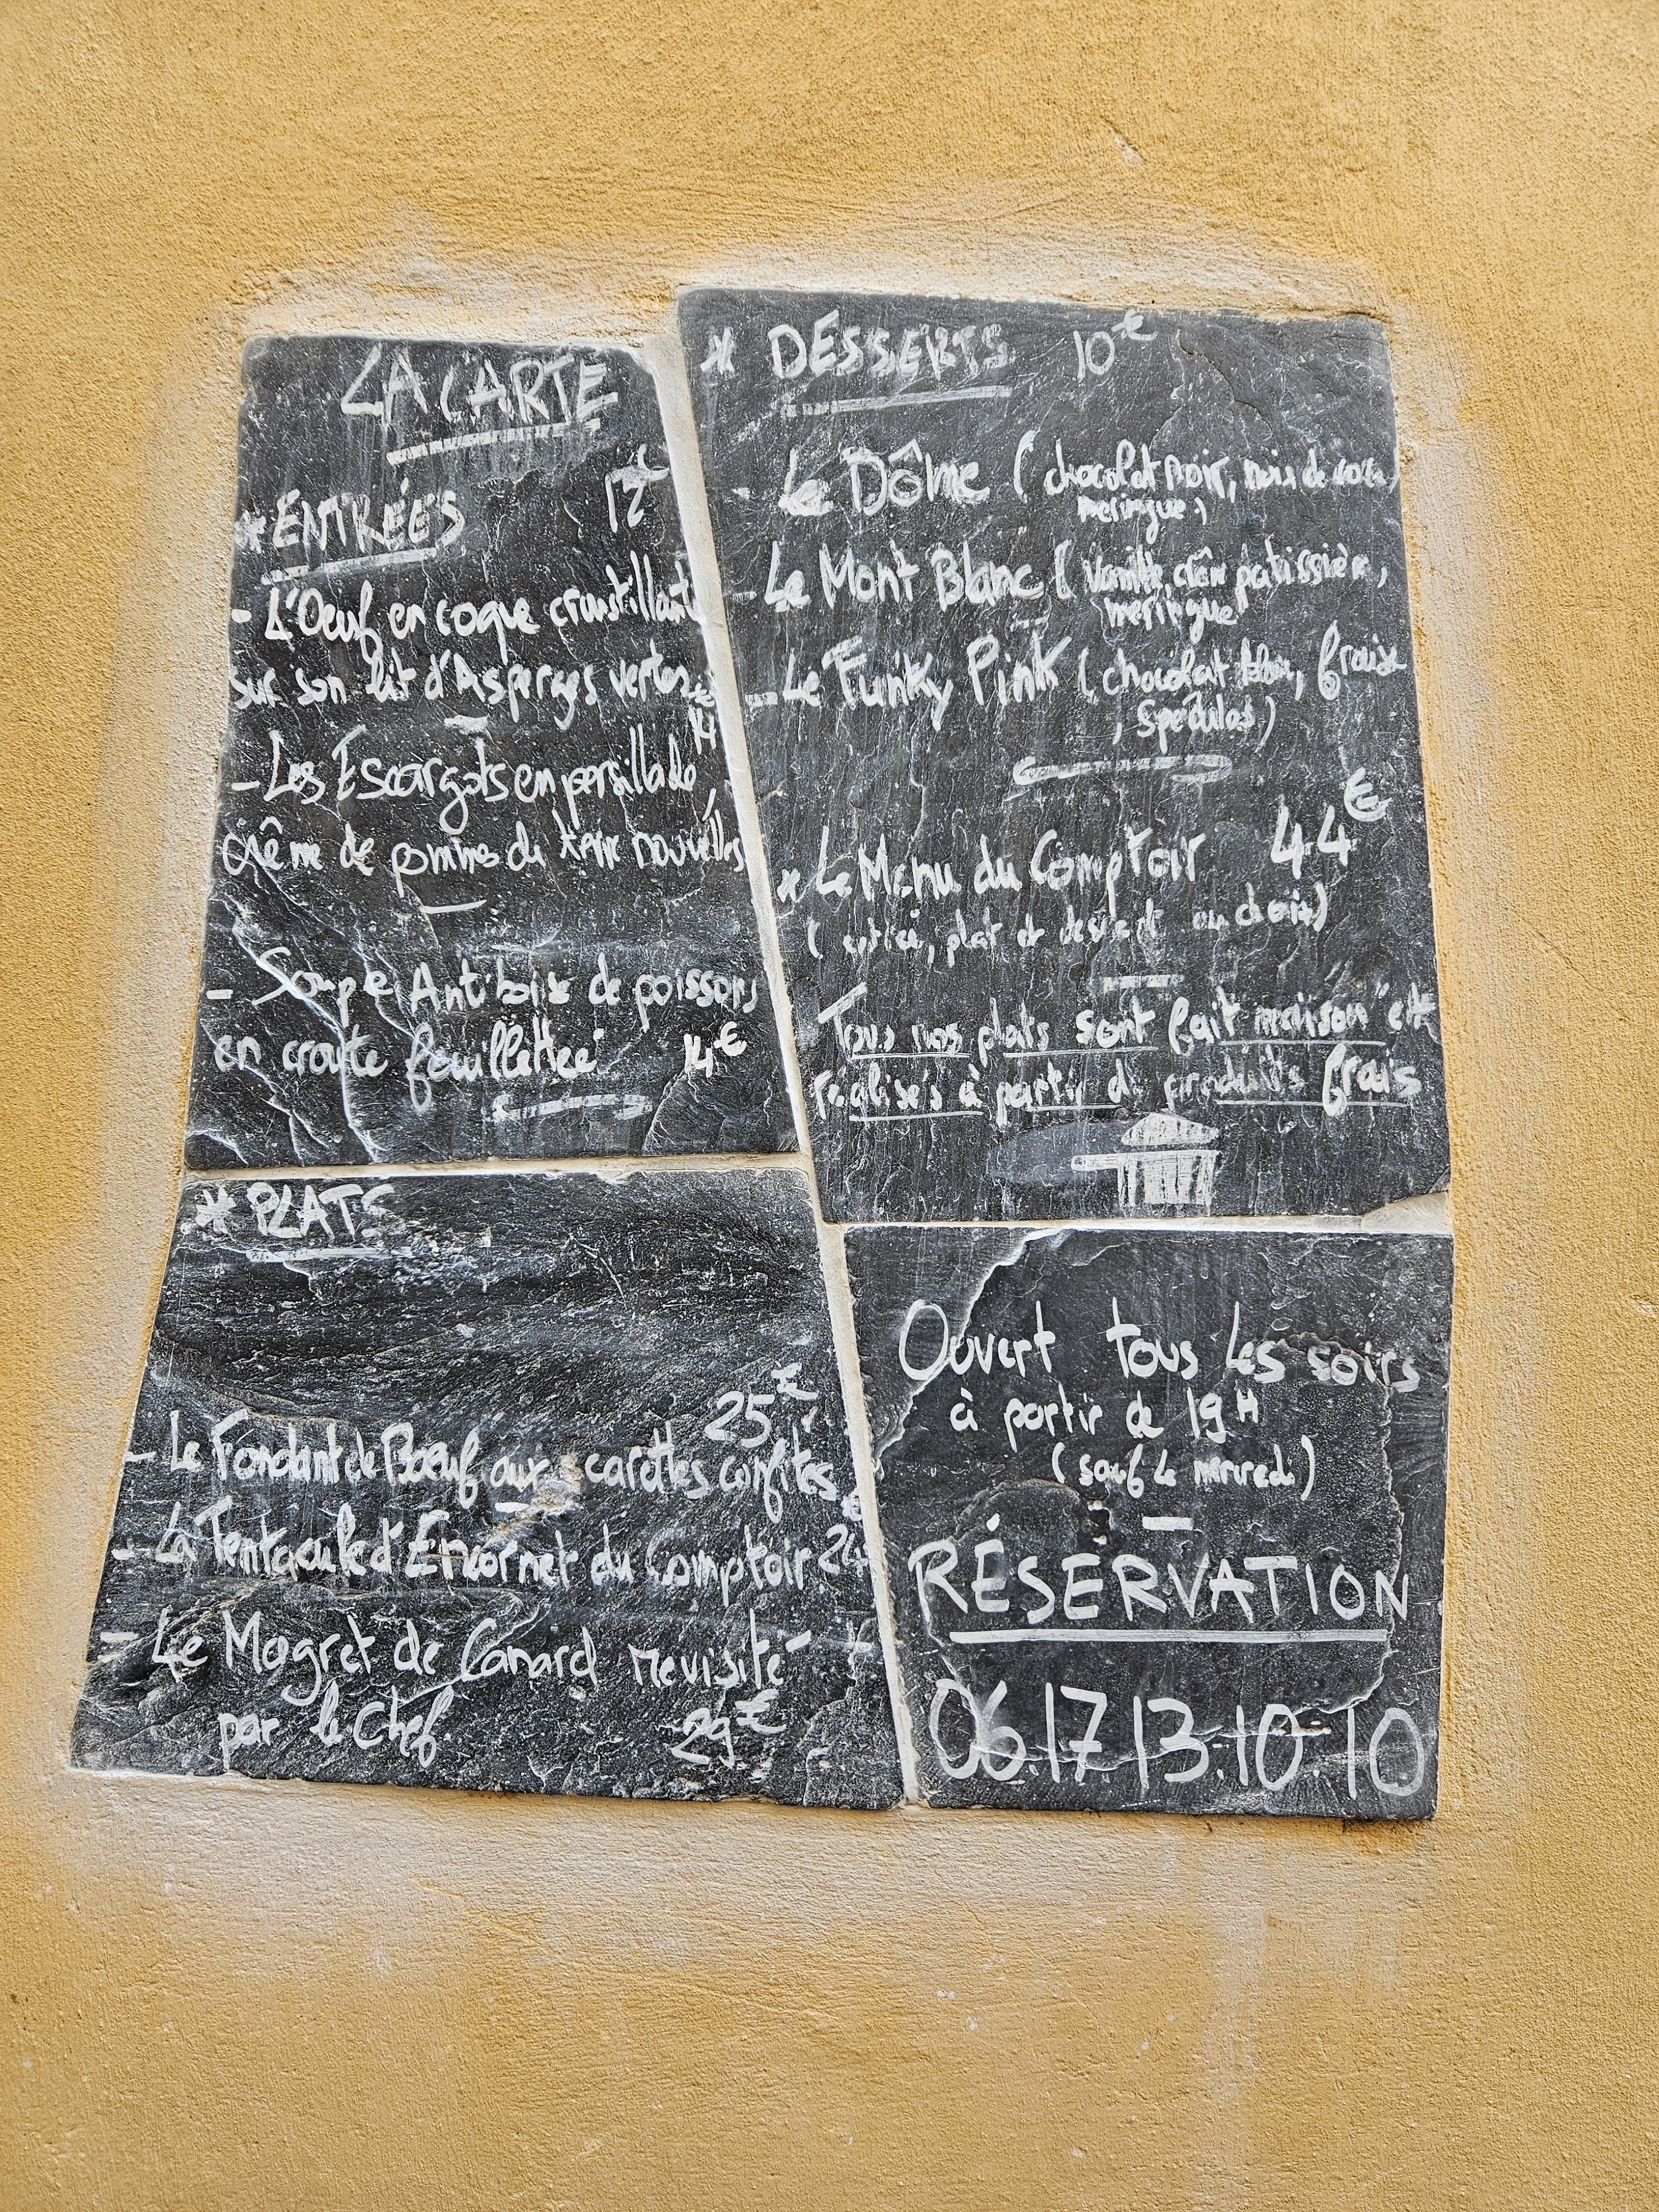 LA CARTE
* ENTRÉES 12€
- L'Oeuf en coque croustillant
sur son lit d'Asperges vertes
14€
- Les Escargots en persillade,
crême de pommes de terre nouvelles
- Soupe Antiboise de poissons
en croute feuillettée 14€
* PLATS
25€
- Le Fondant de Bœuf aux carottes confites
- La Tentacule d'Encornet du Comptoir
- Le Magret de Canard revisité
par le Chef 29€
* DESSERTS 10€
- Le Dôme (chocolat noir, noix de coco,
meringue)
- Le Mont Blanc (vanille crêm patissière,
meringue
- Le Funky Pink (chocolat, fraise
, Spéculos)
* Le Menu du Comptoir 44€
(entrée, plat et dessert au choix)
Tous nos plats sont fait maison et
réalisés à partir de produits frais
Ouvert tous les soirs
à partir de 19H
(sauf le mercredi)
RÉSERVATION
06.17.13.10.10